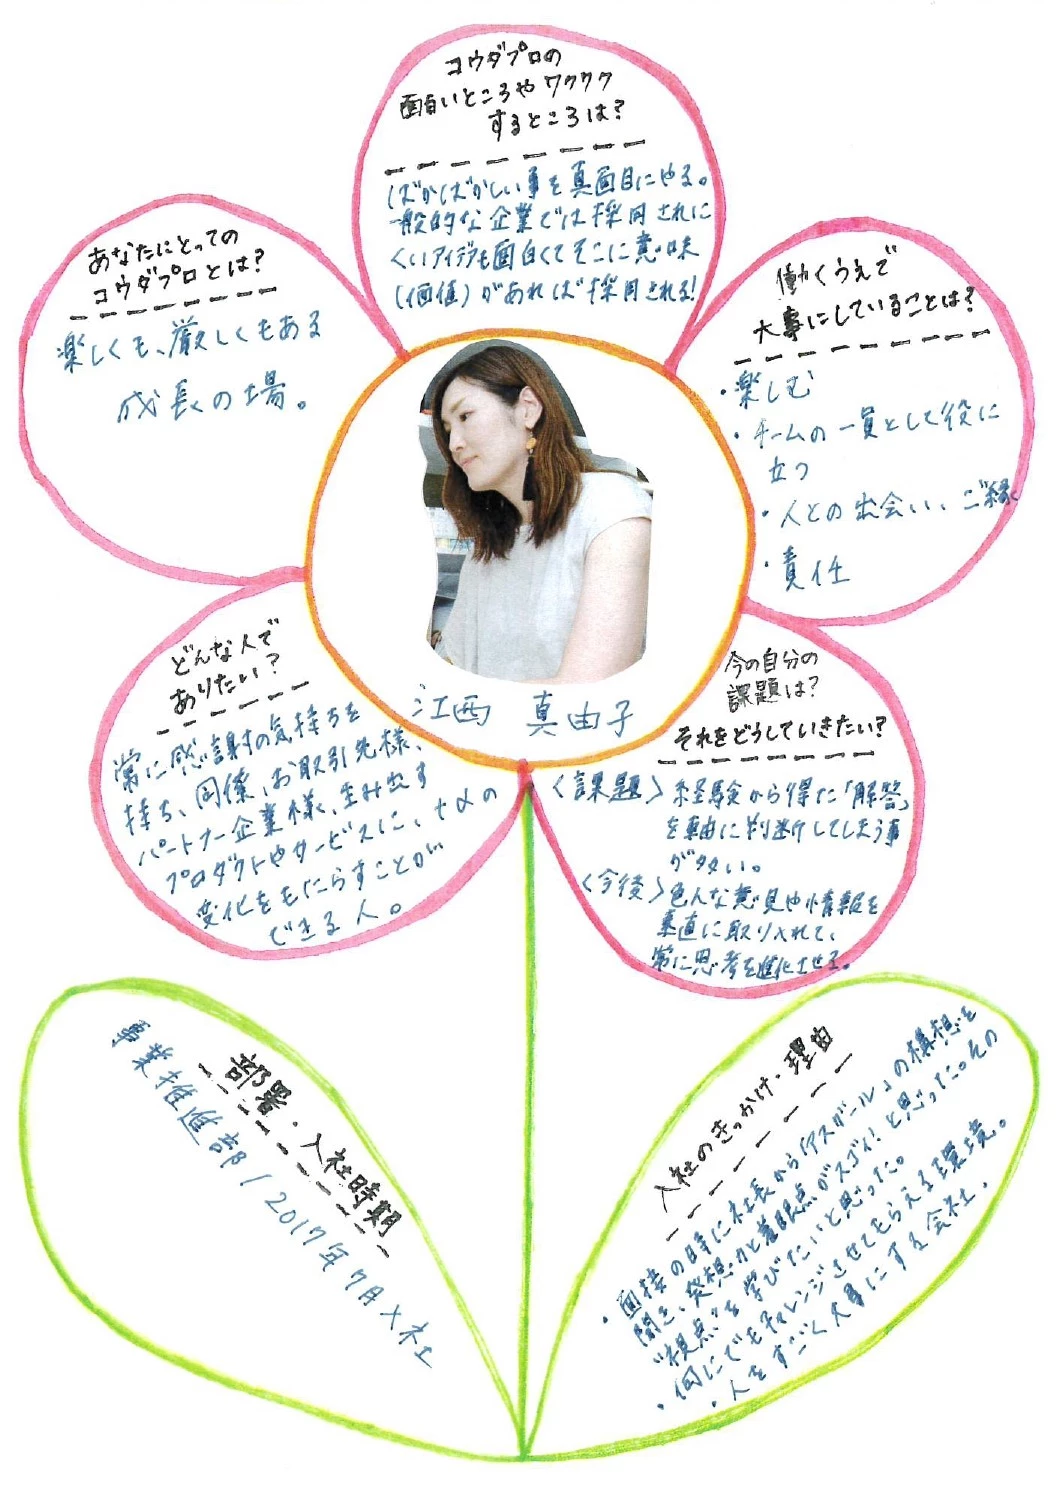 コウダプロの
面白いところやワクワク
するところは?
ばかばかしい事を真面目にやる。
一般的な企業では採用されに
くいアイデアも面白くてそこに意味
(価値)があれば採用される!
あなたにとっての
コウダプロとは?
楽しくも、厳しくもある
成長の場。
働くうえで
大事にしていることは?
・楽しむ
・チームの一員として役に
立つ
・人との出会い、ご縁
・責任
江西 真由子
どんな人で
ありたい?
常に感謝の気持ちを
持ち、同僚、お取引先様、
パートナー企業様、生み出す
プロダクトやサービスに、+〆の
変化をもたらすことが
できる人。
今の自分の
課題は?
それをどうしていきたい?
〈課題〉経験から得た「解答」
を軸に判断してしまう事
が多い。
〈今後〉色んな意見や情報を
素直に取り入れて、
常に思考を進化させる。
部署・入社時期
事業推進部/2017年7月入社
入社のきっかけ・理由
・面接の時に社長から「アスガール」の構想を
聞き、発想力と着眼点がスゴイ!と思った。その
"視点"を学びたいと思った。
・何にでもチャレンジさせてもらえる環境。
・人をすごく大事にする会社。